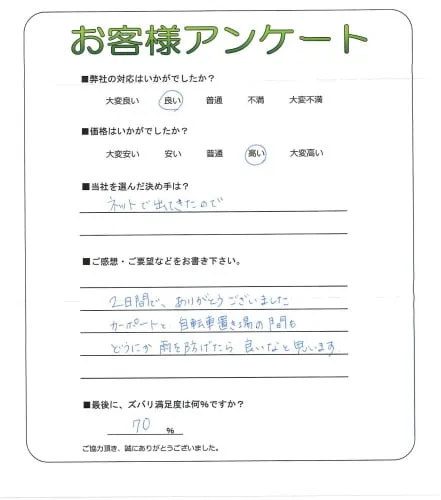 お客様アンケート
■弊社の対応はいかがでしたか?
大変良い 良い 普通 不満 大変不満
■価格はいかがでしたか?
大変安い 安い 普通 高い 大変高い
■当社を選んだ決め手は?
ネットで出てきたので
■ご感想・ご要望などをお書き下さい。
2日間で、ありがとうございました
カーポートと自転車置き場の間も
どうにか雨を防げたら良いなと思います。
■最後に、ズバリ満足度は何%ですか?
70 %
ご協力頂き、誠にありがとうございました。